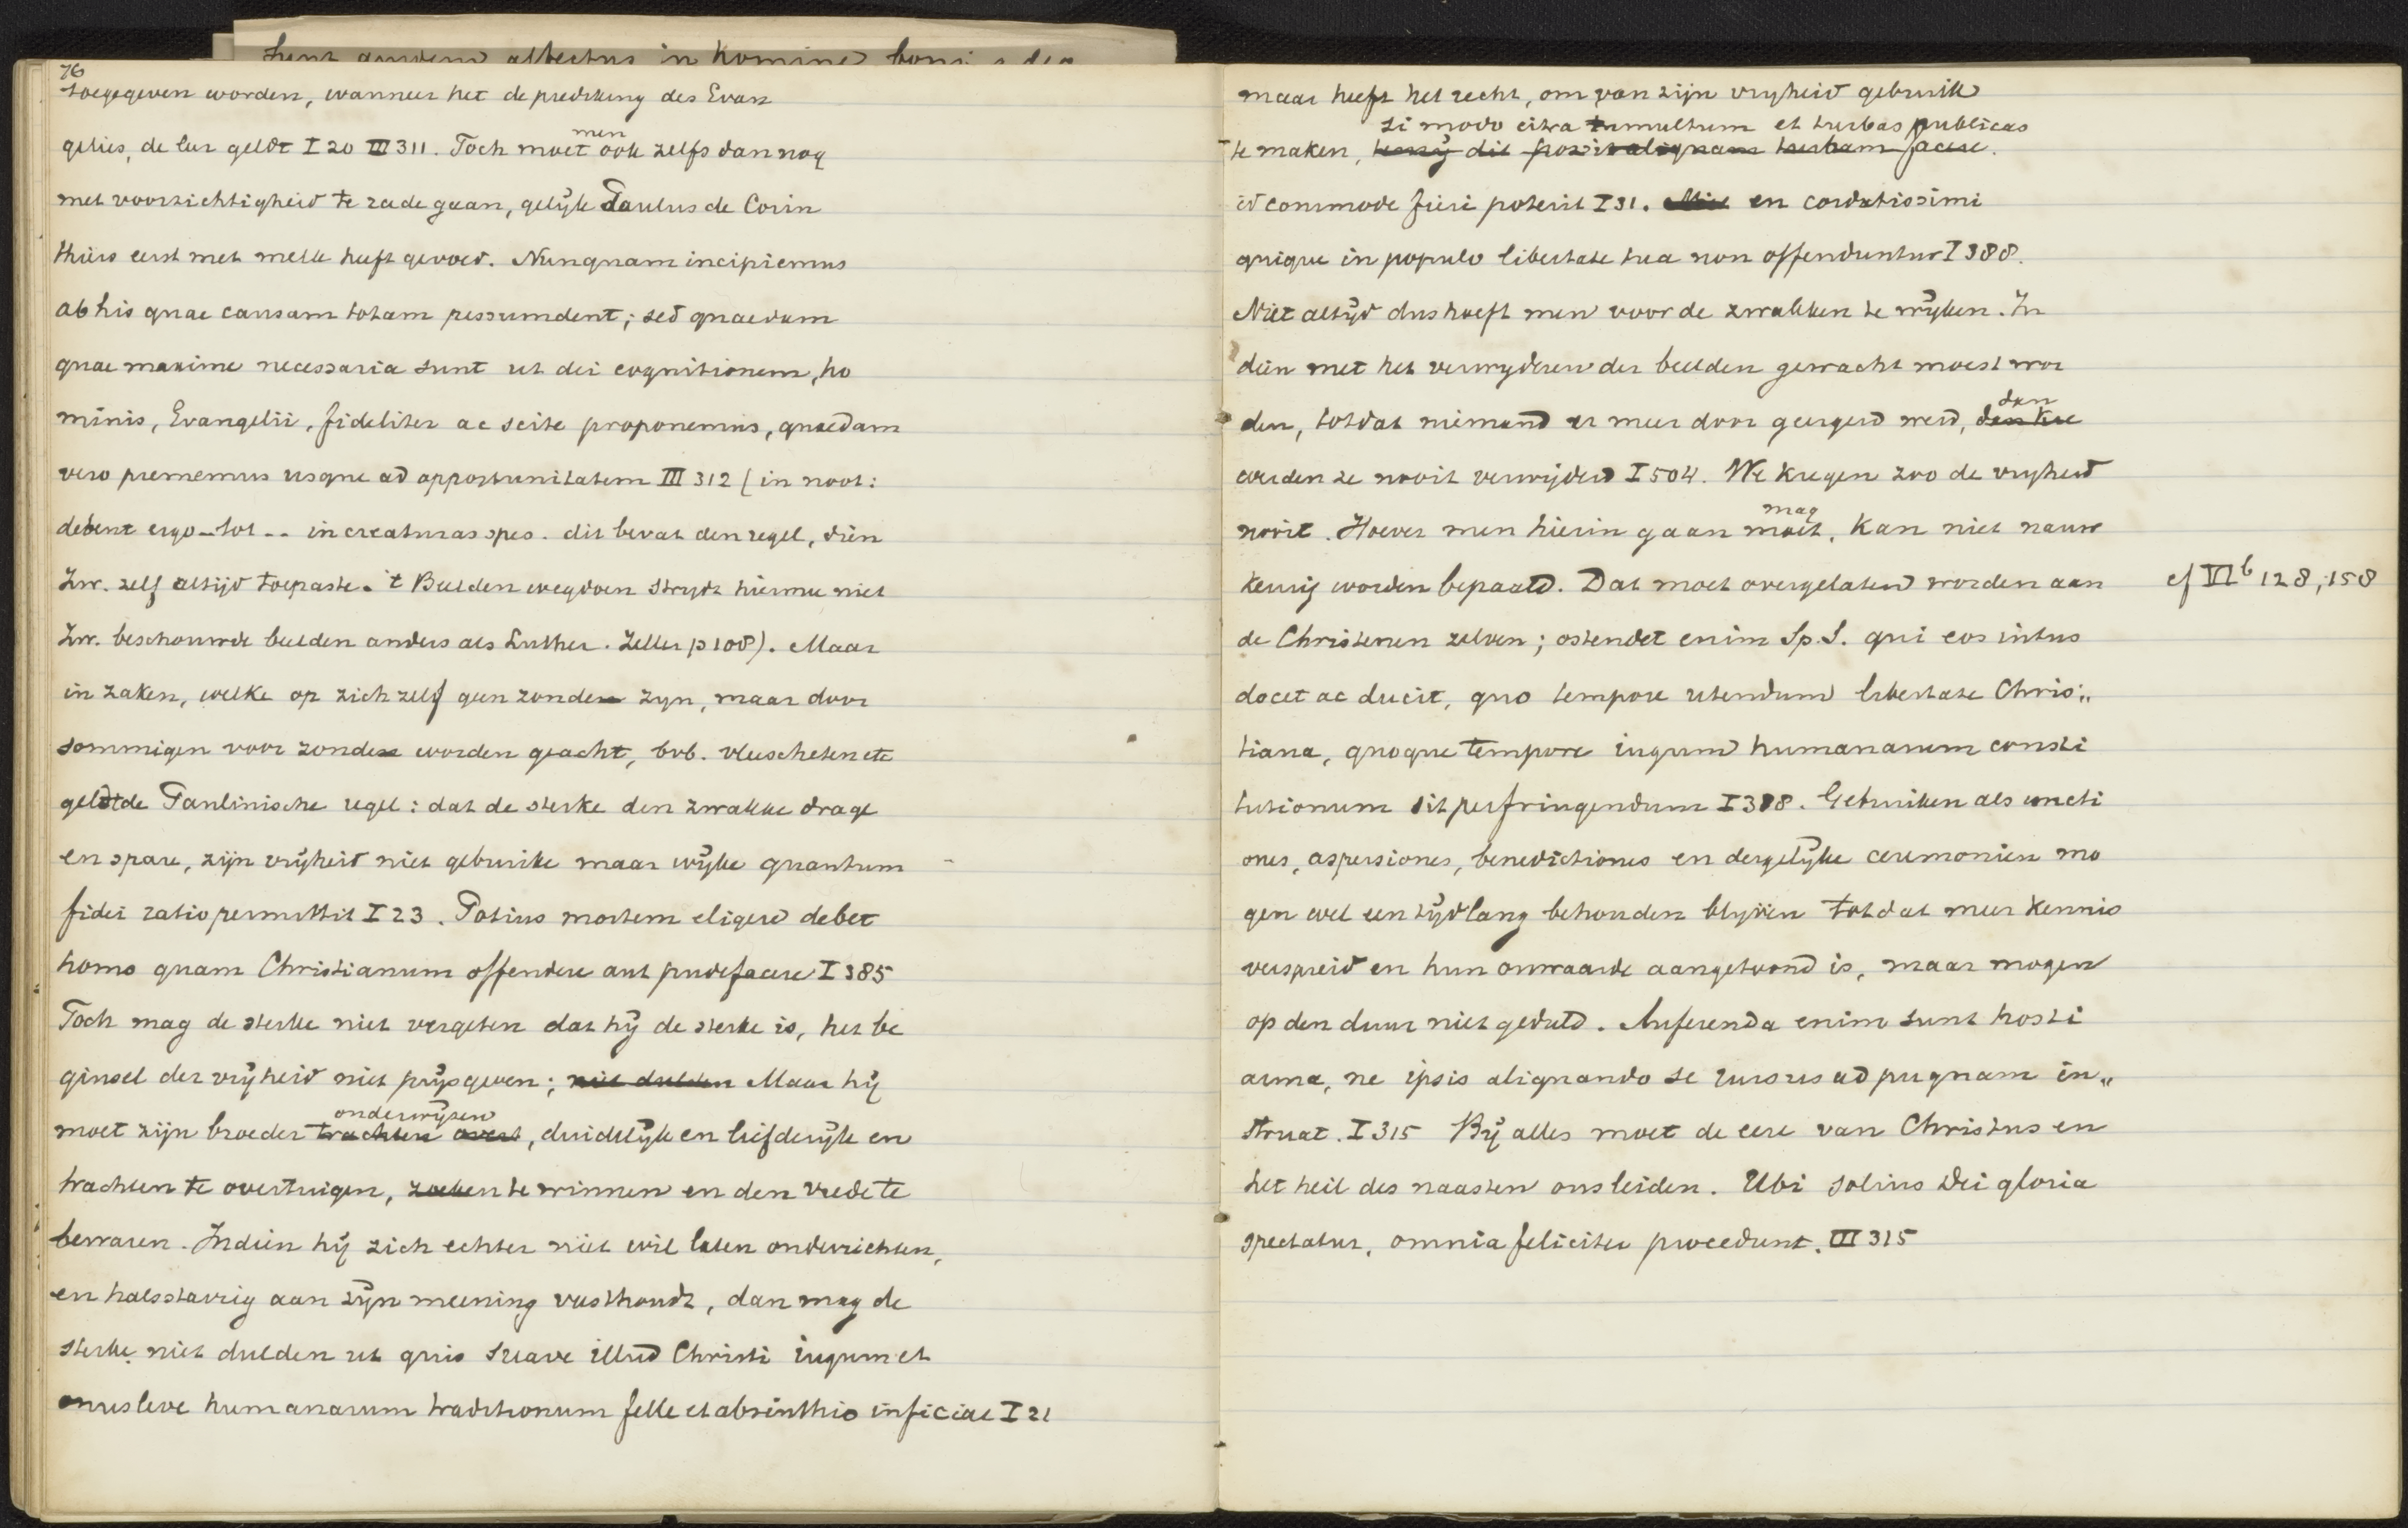 76
toegegeven worden, wanneer het de prediking des Evan
gelies, de leer geldt I 20 III 311. Toch moet men ook zelfs dan nog
met voorzichtigheid te rade gaan, gelijk Paulus de Corin
thiërs eerst met melk heeft gevoed. Nunquam incipiemus
ab his quae causam totam pessumdent; sed quaedam
quae maxime necessaria sunt ut dei cognitionem, ho
minis, Evangelii, fideliter ac scite proponemus, quaedam
vero prememus usque ad opportunitatem III 312 (in noot:
debent ergo - tot -- in creaturas spes. dit bevat den regel, dien
Zw. zelf altijd toepaste. 't Beelden wegdoen strydt hiermee niet
Zw. beschouwde beelden anders als Luther. Zeller p 108). Maar
in zaken, welke op zich zelf geen zonden zyn, maar door
sommigen voor zonden worden geacht, bvb. vleescheten etc
geldt de Paulinische regel: dat de sterke den zwakke drage
en spare, zijn vrijheid niet gebruike maar wijke quantum
fidei ratio permittit I 23. Potius mortem eligere debet
homo quam Christianum offendere aut pudefacere I 385
Toch mag de sterke niet vergeten dat hij de sterke is, het be
ginsel der vrijheid niet prijsgeven; niet dulden Maar hij
onderwijzen
moet zijn broeder trachten overt, duidelijk en liefderijk en
trachten te overtuigen, zoeken te winnen en den vrede te
bewaren. Indien hij zich echter niet wil laten onderrichten,
en halsstarrig aan zijn meening vasthoudt, dan mag de
sterke niet dulden ut quis suave illud Christi iugum et
onus leve humanarum traditionum felle et absinthio inficiat I 21
maar heeft het recht, om van zijn vryheid gebruik
si modo citra tumultum et turbas publicas
te maken, tenzij dit possit aliquam turbam facere.
id commode fieri poterit I 31. Niet en cordatissimi
quique in populo libertate tua non offenduntur I 388.
Niet altijd dus hoeft men voor de zwakken te wijken. In
dien met het verwyderen der beelden gewacht moest wor
den, totdat niemand er meer door geergerd werd, dan
werden ze nooit verwijderd I 504. We kregen zoo de vryheid
nooit. Hoever men hierin gaan moet mag, kan niet nauw
keurig worden bepaald. Dat moet overgelaten worden aan
cf VI b 128, 158
de Christenen zelven; ostendet enim Sp. S. qui eos intus
docet ac ducit, quo tempore utendum libertate Chris„
tiana, quoque tempore iugum humanarum consti
tutionum sit perfringendum I 388. Gebruiken als uncti
ones, aspersiones, benedictiones en dergelijke ceremonien mo
gen wel een tijdlang behouden blijven totdat meer kennis
verspreid en hun onwaarde aangetoond is, maar mogen
op den duur niet geduld. Auferenda enim sunt hosti
arma, ne ipsis aliquando se rursus ad pugnam in„
struat. I 315 Bij alles moet de eere van Christus en
het heil des naasten ons leiden. Ubi solius Dei gloria
spectatur, omnia feliciter procedunt. III 315